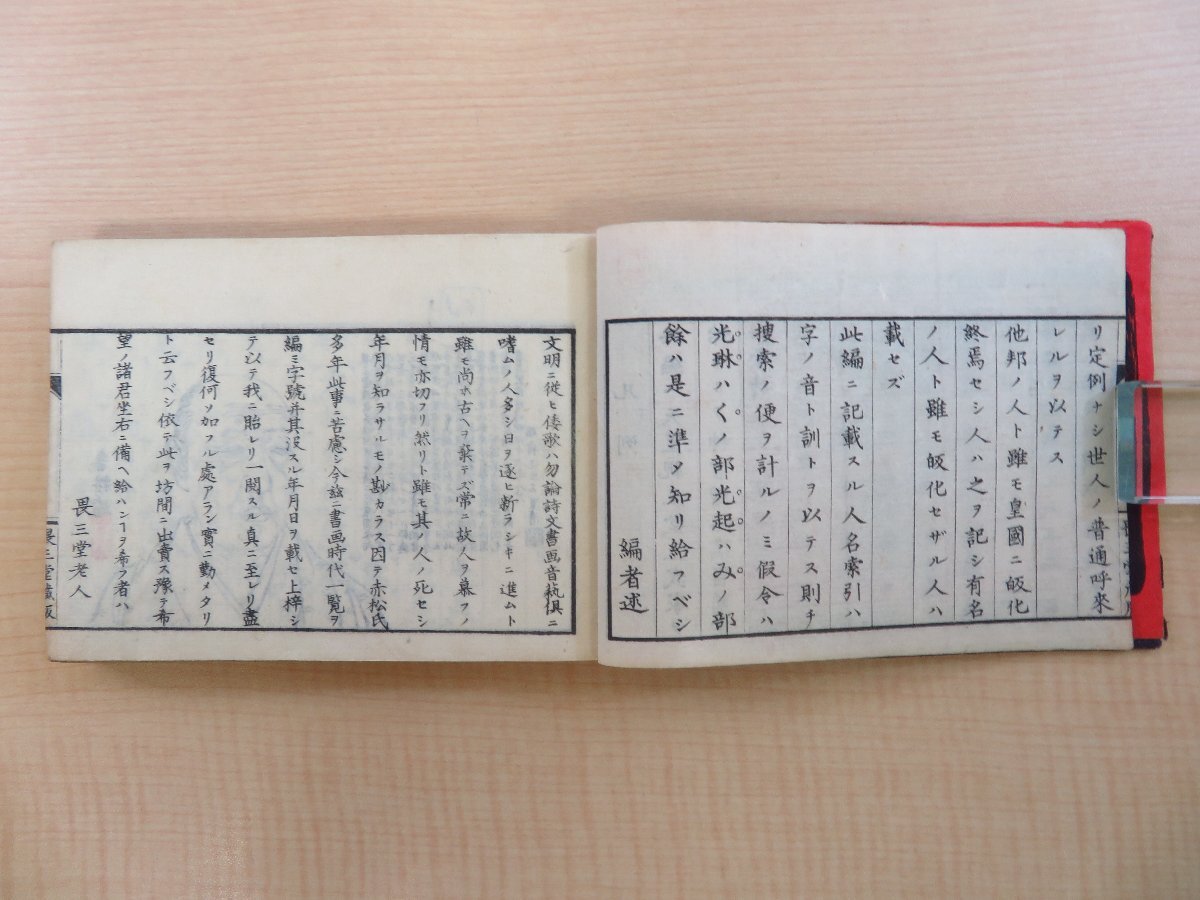 リ定例ナシ世人ノ普通呼來
レルヲ以テス
他邦ノ人ト雖モ皇國ニ皈化
終焉セシ人ハ之ヲ記シ有名
ノ人ト雖モ皈化セザル人ハ
載セズ
此編ニ記載スル人名索引ハ
字ノ音ト訓トヲ以テス則チ
捜索ノ便ヲ計ルノミ假令ハ
光琳ハくノ部光起ハみノ部
餘ハ是ニ準タ知リ給フベシ
編者述
文明ニ従ヒ倭歌ハ勿論詩文書画音執倶ニ
嗜ムノ人多シ日ヲ逐ヒ新ラシキニ進ムト
雖モ尚ホ古ヘヲ棄テズ常ニ故人ヲ慕フノ
情モ亦切フリ然リト雖モ其ノ人ノ死セシ
年月ヲ知ラサルモノ尠カラス因テ赤松氏
多年此事ニ苦慮シ今玆ニ書画時代一覧ヲ
編ミ字號并其没スル年月日ヲ載セ上梓シ
テ以テ我ニ貽レリ一閲スル真ニ至レリ盡
セリ復何ソ加フル處アラン實ニ勤メタリ
ト云フベシ依テ此ヲ坊間ニ出賣ス豫テ希
望ノ諸君坐右ニ備ヘ給ハンヿヲ希フ者ハ
畏三堂老人
畏三堂蔵版